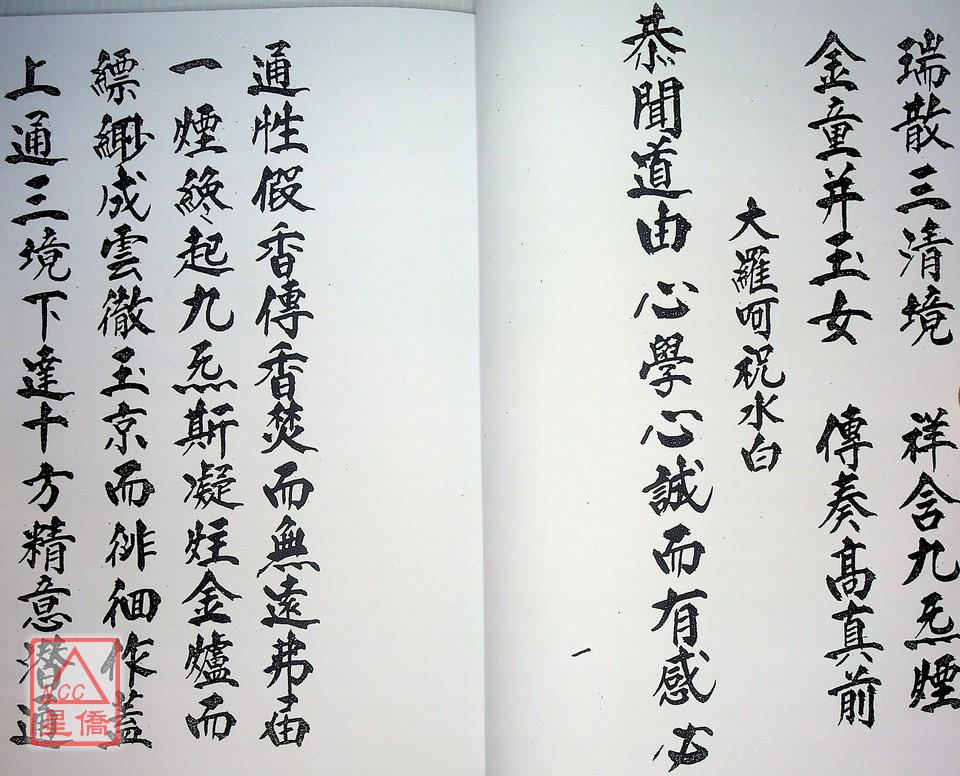 瑞散三清境 祥含九炁煙
金童并玉女 傳奏高真前
大羅呵祝水白
恭聞道由心學心誠而有感必
一
通性假香傳香焚而無遠弗届
一煙纔起九炁斯凝炷金爐而
縹緲成雲徹玉京而徘徊作蓋
上通三境下達十方精意潛通
NCC
星僑